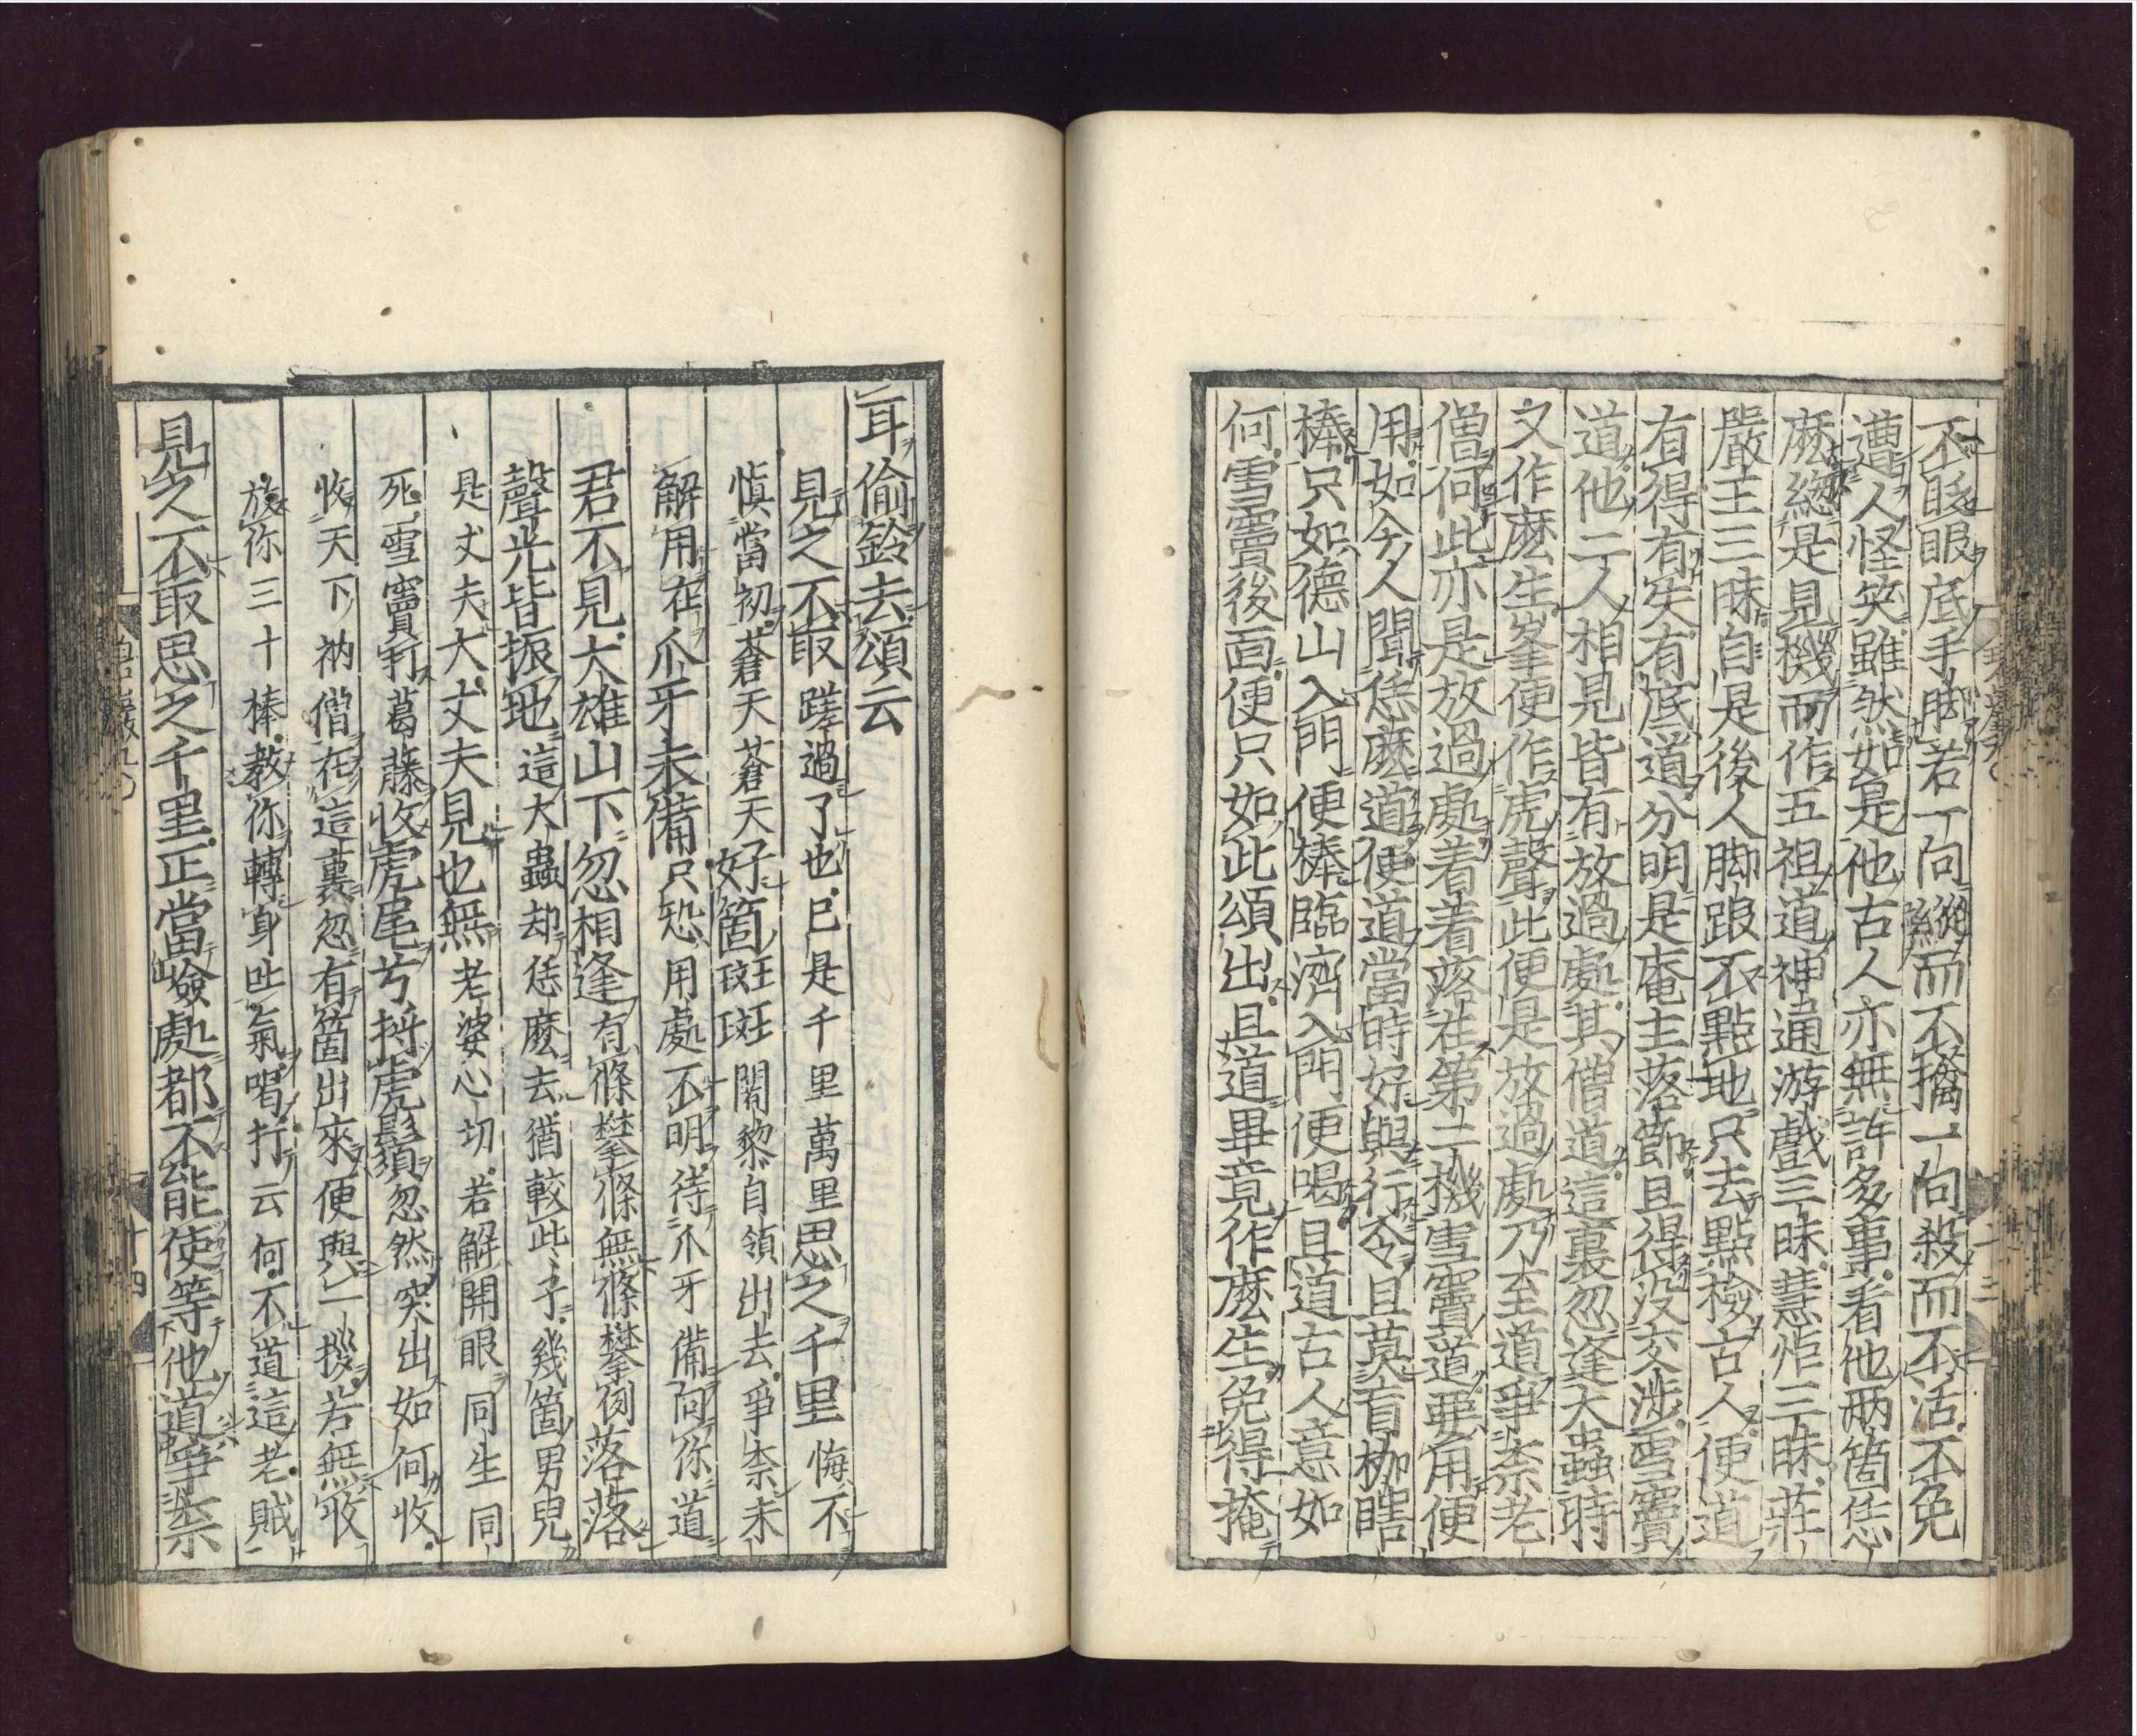 不眨眼底手脚若一向縱而不擒一向殺而不活不免
遭人怪笑雖然如是他古人亦無許多事看他兩箇恁
麽緫是見機而作五祖道神通游戲三昧慧炬三昧莊
嚴王三昧自是後人脚跟不點地只去點檢古人便道
有得有失有底道分明是庵主落節且得没交涉雪竇
道他二人相見皆有放過處其僧道這裏忽逢大蟲時
又作麽生峯便作虎聲此便是放過處乃至道爭柰老
僧何此亦是放過處着着落在第二機雪竇道要用便
用如今人聞恁麽道便道當時好與行令且莫盲枷瞎
棒只如德山入門便棒臨濟入門便喝且道古人意如
何雪竇後面便只如此頌出且道畢竟作麽生免得掩
耳偷鈴去頌云
見之不取蹉過了也已是千里萬里思之千里悔不
慎當初蒼天蒼天好箇斑斑闍黎自領出去爭柰未
解用在爪牙未備只恐用處不明待爪牙備向你道
君不見大雄山下忽相逢有條攀條無條攀例落落
聲光皆振地這大蟲却恁麽去猶較些子幾箇男兒
是丈夫大丈夫見也無老婆心切若解開眼同生同
死雪竇打葛藤收虎尾兮捋虎鬚忽然突出如何收
收天下衲僧在這裏忽有箇出來便與一拶若無收
放你三十棒教你轉身吐氣喝打云何不道這老賊
見之不取思之千里正當嶮處都不能使等他道爭柰
十四